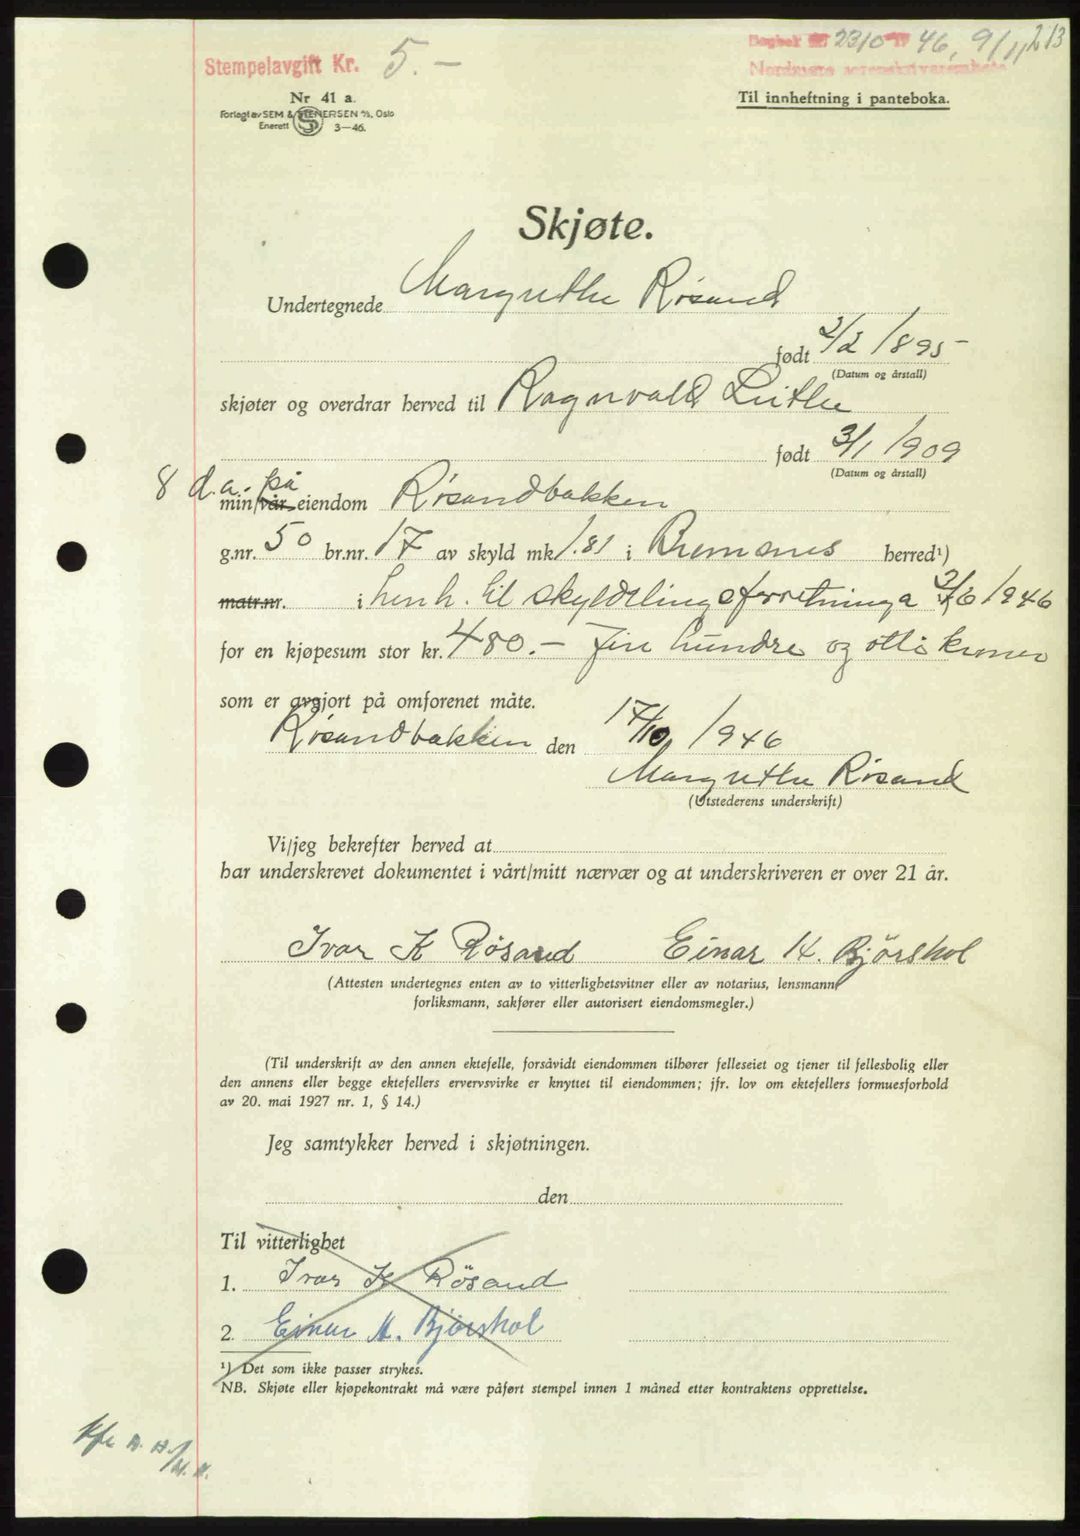 Stempelavgift Kr. 5.—
Dagbok 2310 46, 9/11 213
Nordmøre sorenskriverembete
Nr 41 a.
Til innheftning i panteboka.
Forlagt av SEM & STENERSEN A/S, Oslo
Enerett 3—46.
Skjøte.
Undertegnede Margrethe Røsand
født 2/2 1895
(Datum og årstall)
skjøter og overdrar herved til Ragnvald
født 3/1 1909
(Datum og årstall)
8 d.a. på
min/vår eiendom Røsandbakken
g.nr. 50 br.nr. 17 av skyld mk 1.81 i Bremsnes herred¹)
matr.nr. i henh. til skyldelingsforretning a 2/6 1946
for en kjøpesum stor kr. 480.— Fire hundre og otti kroner
som er avgjort på omforenet måte.
Røsandbakken den 17/10 1946
Margrethe Røsand
(Utstederens underskrift)
Vi/jeg bekrefter herved at
har underskrevet dokumentet i vårt/mitt nærvær og at underskriveren er over 21 år.
Ivar K Røsand Einar H. Bjørshol
(Attesten undertegnes enten av to vitterlighetsvitner eller av notarius, lensmann,
forliksmann, sakfører eller autorisert eiendomsmegler.)
(Til underskrift av den annen ektefelle, forsåvidt eiendommen tilhører felleseiet og tjener til fellesbolig eller
den annens eller begge ektefellers ervervsvirke er knyttet til eiendommen; jfr. lov om ektefellers formuesforhold
av 20. mai 1927 nr. 1, § 14.)
Jeg samtykker herved i skjøtningen.
den
Til vitterlighet
1. Ivar K Røsand
2. Einar H. Bjørshol
¹) Det som ikke passer strykes.
NB. Skjøte eller kjøpekontrakt må være påført stempel innen 1 måned etter kontraktens opprettelse.